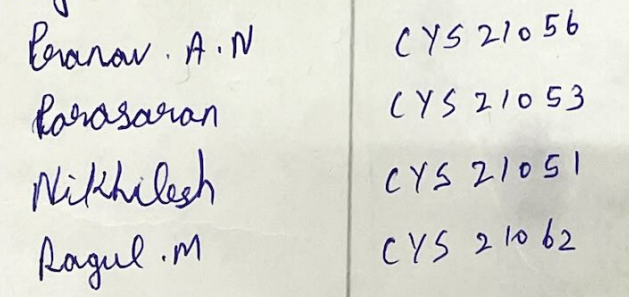 Pranav. A.N CYS 21056
Parasaran CYS 21053
Nikhilesh CYS 21051
Ragul.M CYS 21062